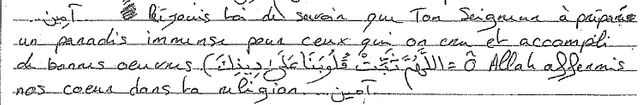 آمين... Réjouis toi de savoir que Ton Seigneur à préparée
un paradis immense pour ceux qui on cru et accompli
de bonnes oeuvres (اللَّهُمَّ ثَبِّتْ قُلُوبَنَا عَلَى دِينِكَ = Ô Allah affermis
nos coeur dans ta religion... آمين